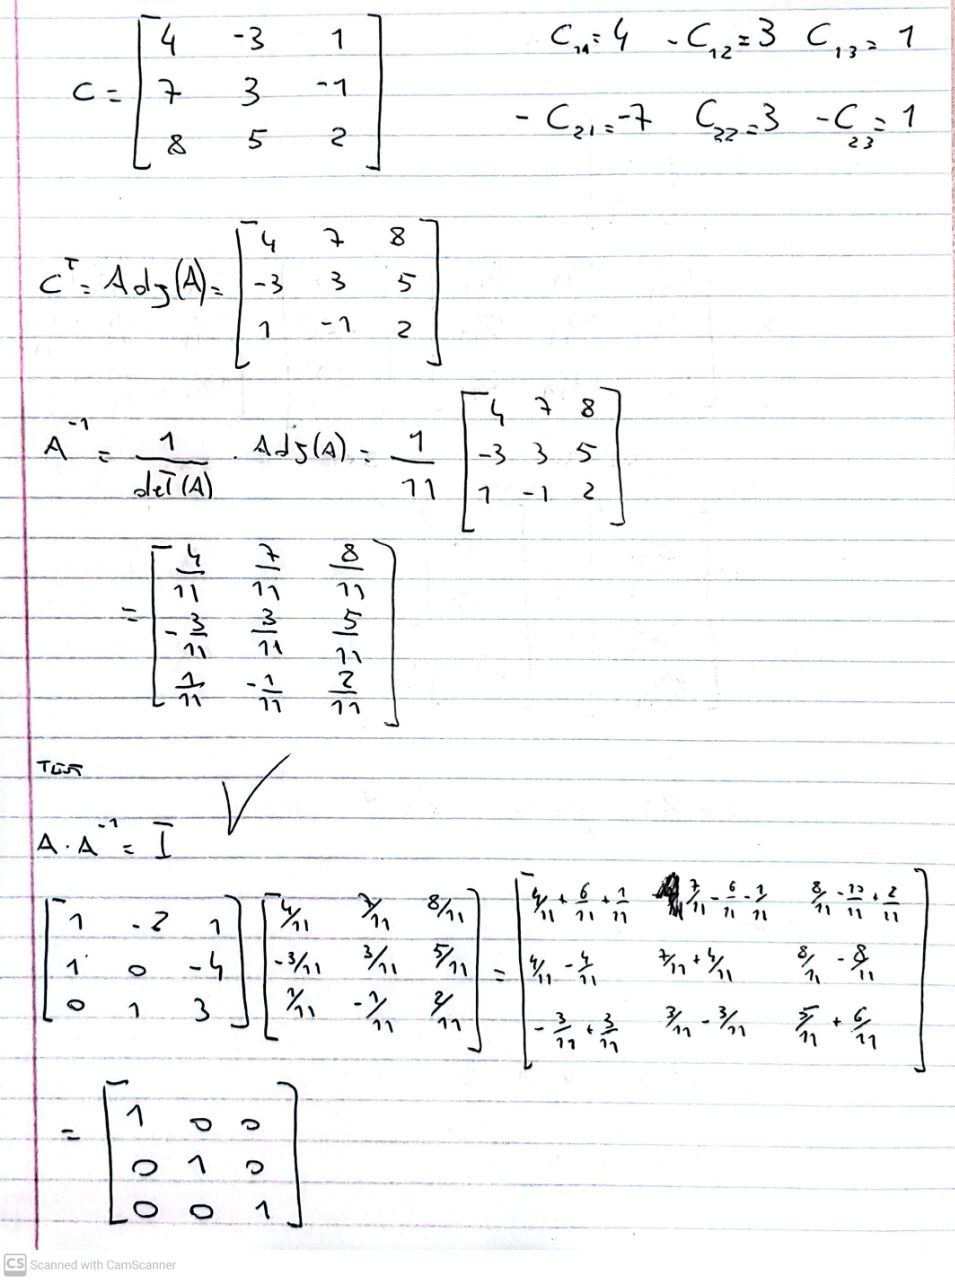 C = [4 -3 1 C₁₁ = 4 - C₁₂ = 3 C₁₃ = 1
7 3 -1
8 5 2] - C₂₁ = -7 C₂₂ = 3 - C₂₃ = 1
Cᵀ = Adj(A) = [4 7 8
-3 3 5
1 -1 2]
A⁻¹ = 1/det(A) . Adj(A) = 1/11 [4 7 8
-3 3 5
1 -1 2]
= [4/11 7/11 8/11
-3/11 3/11 5/11
1/11 -1/11 2/11]
TEST ✓
A . A⁻¹ = I
[1 -2 1 [4/11 7/11 8/11 [4/11 + 6/11 + 1/11 7/11 - 6/11 - 1/11 8/11 - 10/11 + 2/11
1 0 -4 -3/11 3/11 5/11 = 4/11 - 4/11 7/11 + 4/11 8/11 - 8/11
0 1 3] 1/11 -1/11 2/11] -3/11 + 3/11 3/11 - 3/11 5/11 + 6/11]
= [1 0 0
0 1 0
0 0 1]
CS Scanned with CamScanner